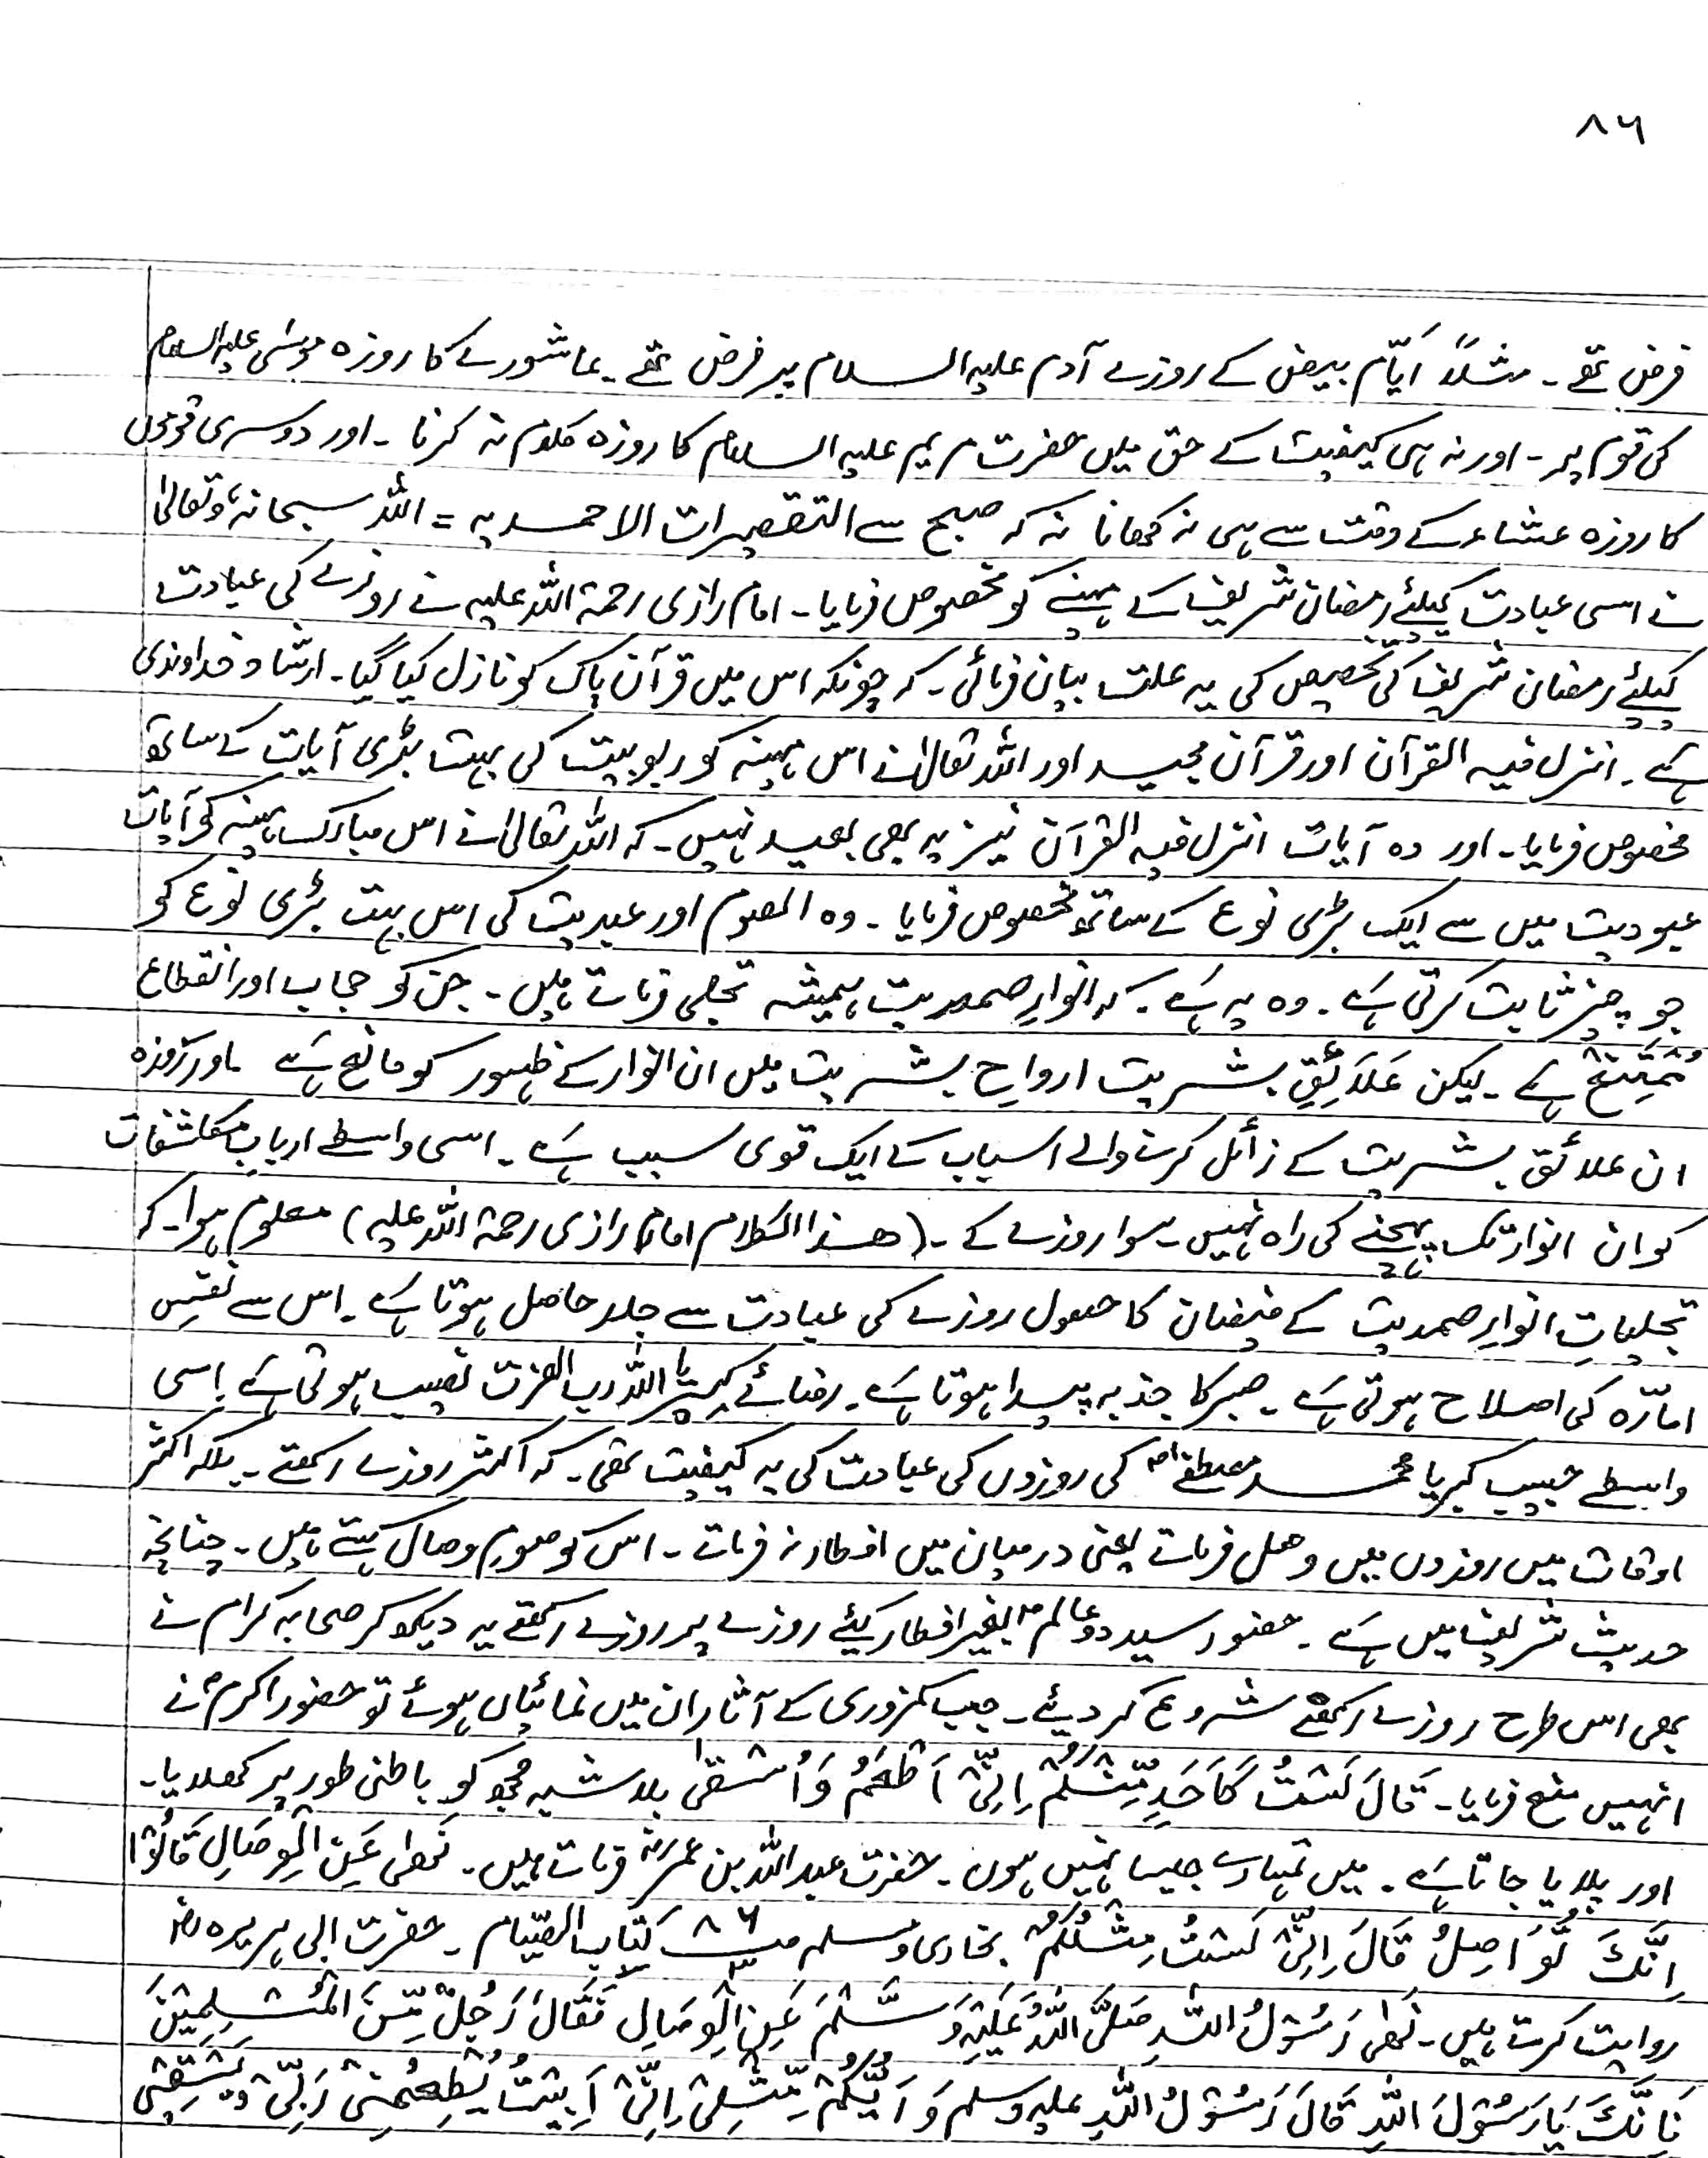 ۸۶
فرض تھے۔ مثلاً اَیّام بیض کے روزے آدم علیہ السلام پر فرض تھے۔ عاشورے کا روزہ موسٰی علیہ السلام
کی قوم پر۔ اور نہ ہی کیفیت کے حق میں حضرت مریم علیہ السلام کا روزہ کلام نہ کرنا۔ اور دوسری قوموں
کا روزہ عشاء کے وقت سے ہی نہ کھانا نہ کہ صبح سے التقصیرات الاحمدیہ = اللہ سبحانہٗ وتعالیٰ
نے اسی عبادت کیلئے رمضان شریف کے مہینے کو مخصوص فرمایا۔ امام رازی رحمۃ اللہ علیہ نے روزے کی عبادت
کیلئے رمضان شریف کی تخصیص کی یہ علت بیان فرمائی۔ کہ چونکہ اس میں قرآن پاک کو نازل کیا گیا۔ ارشاد خداوندی
ہے۔ انزل فیہ القرآن اور قرآن مجید اور اللہ تعالیٰ نے اس مہینہ کو ربوبیت کی بہت بڑی آیات کے ساتھ
مخصوص فرمایا۔ اور وہ آیات انزل فیہ القرآن نیز یہ بھی بعید نہیں۔ کہ اللہ تعالیٰ نے اس مبارک مہینہ کو آیات
عبودیت میں سے ایک بڑی نوع کے ساتھ مخصوص فرمایا۔ وہ الصوم اور عبدیت کی اس بہت بڑی نوع کو
جو چیز ثابت کرتی ہے۔ وہ یہ ہے۔ کہ انوارِ صمدیت ہمیشہ تجلی فرماتے ہیں۔ جن کو حجاب اور انقطاع
مُمْتَنِعْ ہے۔ لیکن عَلَائِقِ بشریت ارواحِ بشریت میں ان انوار کے ظہور کو مانع ہے۔ اور روزہ
ان علائق بشریت کے زائل کرنے والے اسباب کے ایک قوی سبب ہے۔ اسی واسطے اربابِ مکاشفات
کو ان انوار تک پہنچنے کی راہ نہیں۔ سوا روزے کے۔ (ھذا الکلام امام رازی رحمۃ اللہ علیہ) معلوم ہوا۔ کہ
تجلیاتِ انوارِ صمدیت کے فیضان کا حصول روزے کی عبادت سے جلد حاصل ہوتا ہے۔ اس سے نفسِ
امّارّہ کی اصلاح ہوتی ہے۔ صبر کا جذبہ پیدا ہوتا ہے۔ رضائے کبریا اللہ رب العزت نصیب ہوتی ہے۔ اسی
واسطے حبیب کبریا محمد مصطفےٰ ؐ کی روزوں کی عبادت کی یہ کیفیت تھی۔ کہ اکثر روزے رکھتے۔ بلکہ اکثر
اوقات میں روزوں میں وصل فرماتے یعنی درمیان میں افطار نہ فرماتے۔ اس کو صومِ وصال کہتے ہیں۔ چنانچہ
حدیث شریف میں ہے۔ حضور سید دو عالم ؐ بغیر افطار کیئے روزے پر روزے رکھتے یہ دیکھ کر صحابہ کرام نے
بھی اس طرح روزے رکھنے شروع کر دیئے۔ جب کمزوری کے آثار ان میں نمائیاں ہوئے تو حضور اکرم ؐ نے
انہیں منع فرمایا۔ قَالَ لَسْتُ کَاَحَدٍ مِّثْلُکُمْ اِنِّیْ اَطْعَمُ وَاُسْقٰی بلا شبہ مجھ کو باطنی طور پر کھلایا۔
اور پلایا جاتا ہے۔ میں تمہارے جیسا نہیں ہوں۔ حضرت عبداللہ بن عمرؓ فرماتے ہیں۔ نَھٰی عَنِ الْوِصَالِ قَالُوْا
اِنَّکَ تُوَاصِلُ قَالَ اِنِّیْ لَسْتُ مِثْلُکُمْ بخاری و مسلم ۸۶ کتاب الصّیام۔ حضرت ابی ہریرہؓ
روایت کرتے ہیں۔ نَھٰی رَسُوْلُ اللہِ صَلَّی اللہُ عَلَیْہِ وَسَلَّمَ عَنِ الْوِصَالِ فَقَالَ رَجُلٌ مِّنَ الْمُسْلِمِیْنَ
فَاِنَّکَ یَا رَسُوْلَ اللہِ قَالَ رَسُوْلُ اللہِ علیہ وسلم وَاَیُّکُمْ مِّثْلِیْ اِنِّیْ اَبِیْتُ یُطْعِمُنِیْ رَبِّیْ وَیَسْقِیْنِیْ